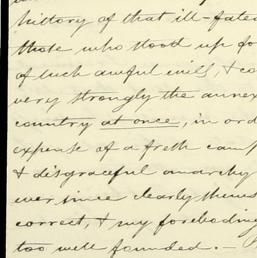 history of that ill-fated
those who stood up fo
of such awful evils, & co
very strongly the annex
country at once, in ord
expense of a fresh cam
& disgraceful anarchy
ever since clearly them
correct, & my foreboding
too well founded. —